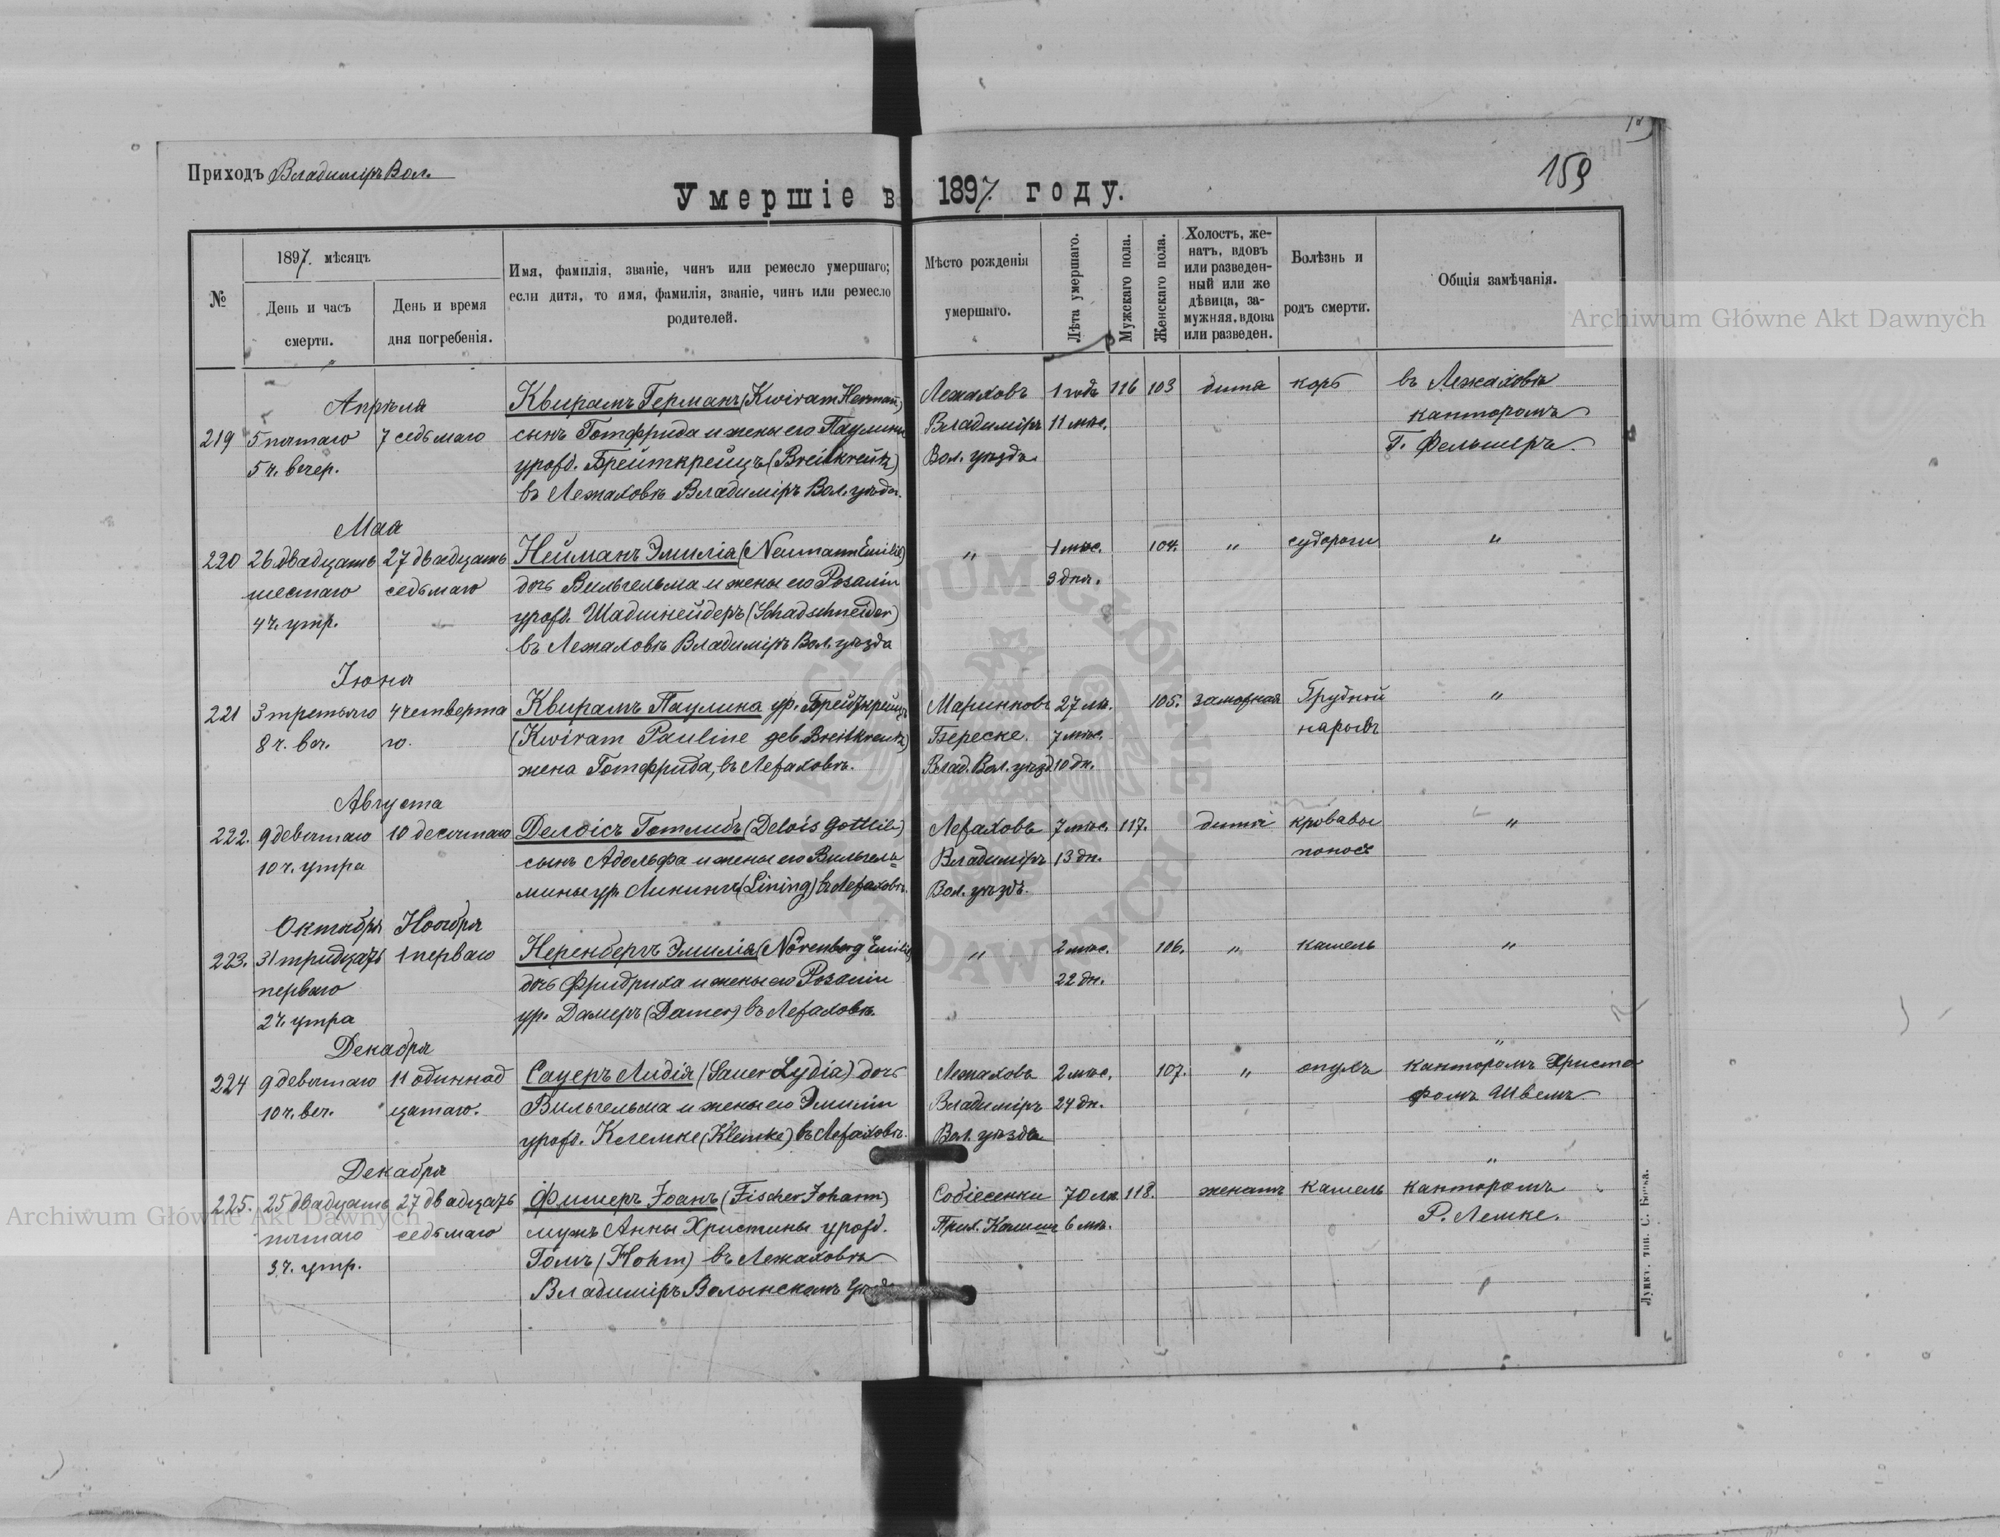 159
Приходъ Владиміръ Вол.
Умершіе въ 1897. году.
№
1897. мѣсяцъ
День и часъ
смерти.
День и время
дня погребенія.
Имя, фамилія, званіе, чинъ или ремесло умершаго;
если дитя, то имя, фамилія, званіе, чинъ или ремесло
родителей.
Мѣсто рожденія
умершаго.
Лѣта умершаго.
Мужскаго пола.
Женскаго пола.
Холостъ, же-
натъ, вдовъ
или разведен-
ный или же
дѣвица, за-
мужняя, вдова
или разведен.
Болѣзнь и
родъ смерти.
Общія замѣчанія.
Апрѣля
219 5 пятаго
5 ч. вечер.
7 седьмаго
Квирамъ Германъ (Kwiram Hermann)
сынъ Готфрида и жены его Паулины
урожд. Брейткрейцъ (Breitkreutz)
въ Лежаховѣ Владиміръ Вол. уѣзда.
Лежаховъ
Владиміръ
Вол. уѣзда
1 годъ
11 мѣс.
116
103
дитя
корь
въ Лежаховѣ
канторомъ
Г. Фельшеръ.
Мая
220 26 двадцать
шестаго
4 ч. утр.
27 двадцать
седьмаго
Нейманъ Эмилія (Neumann Emilie)
дочь Вильгельма и жены его Розаліи
урожд. Шадшнейдеръ (Schadschneider)
въ Лежаховѣ Владиміръ Вол. уѣзда
"
1 мѣс.
3 дня.
104.
"
судороги
"
Іюня
221 3 третьяго
8 ч. веч.
4 четверта
го.
Квирамъ Паулина ур. Брейткрейцъ
(Kwiram Pauline geb Breitkreutz)
жена Готфрида, въ Лежаховѣ.
Маринковъ
Береске.
Влад. Вол. уѣзд.
27 лѣ.
7 мѣс.
10 дн.
105.
замужная
Грудной
нарывъ
"
Августа
222. 9 девятаго
10 ч. утра
10 десятаго
Делоісъ Готлибъ (Delois Gottlieb)
сынъ Адольфа и жены его Вильгель
мины ур. Линингъ (Lining) въ Лежаховѣ.
Лежаховъ
Владиміръ
Вол. уѣздъ.
7 мѣс.
13 дн.
117.
дитя
кровавы
поносъ
"
Октября Ноября
223. 31 тридцать
перваго
2 ч. утра
1 перваго
Неренбергъ Эмилія (Nörenberg Emilie)
дочь Фридриха и жены его Розаліи
ур. Дамеръ (Damer) въ Лежаховѣ.
"
2 мѣс.
22 дн.
106.
"
кашель
"
Декабря
224 9 девятаго
10 ч. веч.
11 одиннад
цатаго.
Сауеръ Лидія (Sauer Lydia) дочь
Вильгельма и жены его Эмиліи
урожд. Клемке (Klemke) въ Лежаховѣ.
Лежаховъ
Владиміръ
Вол. уѣзда
2 мѣс.
24 дн.
107.
"
опухъ
"
канторомъ Христо
фомъ Швемъ
Декабря
225. 25 двадцать
пятаго
3 ч. утр.
27 двадцать
седьмаго
Фишеръ Іоанъ (Fischer Johann)
мужъ Анны Христины урожд.
Гомъ (Hohm) въ Лежаховѣ
Владиміръ Волынскомъ уѣздѣ
Собіесенки
70 лѣ.
6 мѣ.
118.
женатъ
кашель
"
канторомъ
Р. Лемке.
Archiwum Główne Akt Dawnych
Archiwum Główne Akt Dawnych